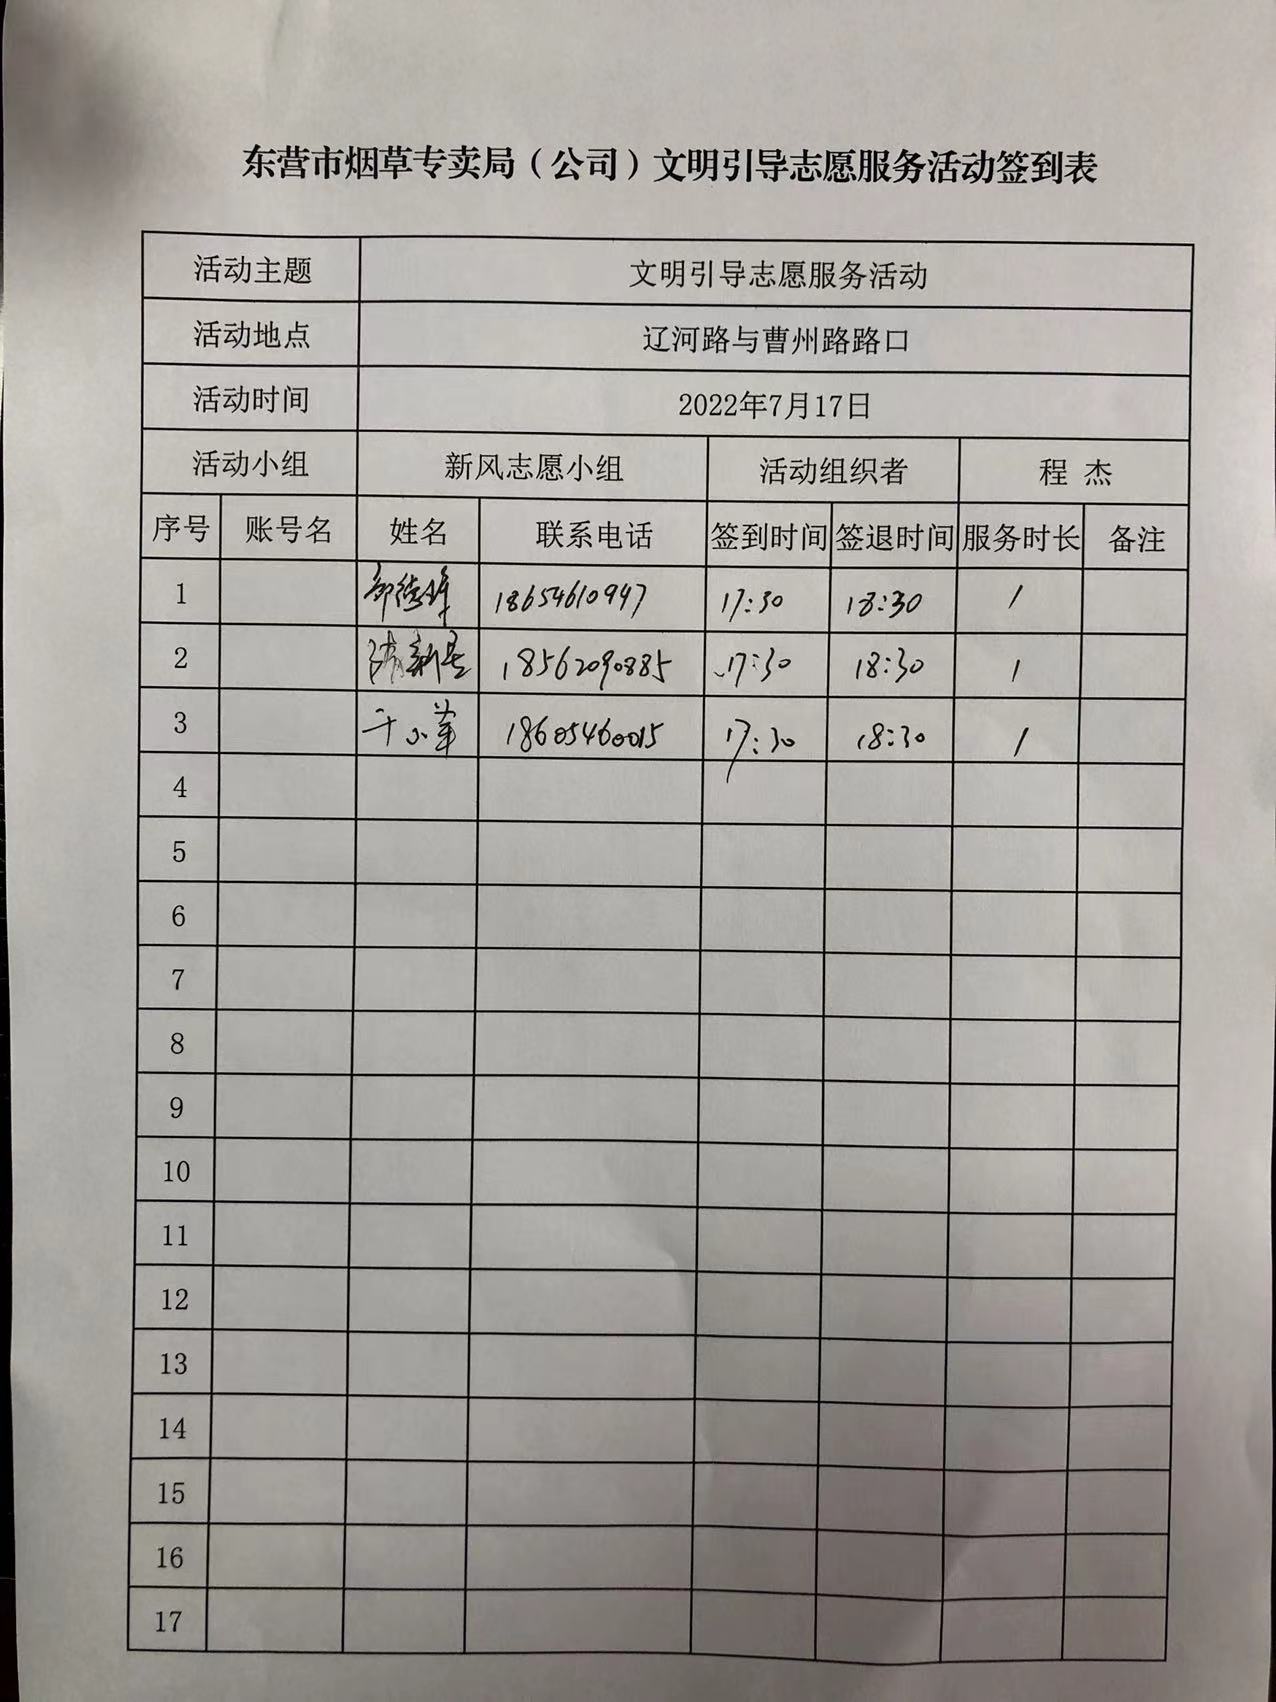 东营市烟草专卖局（公司）文明引导志愿服务活动签到表
活动主题 文明引导志愿服务活动
活动地点 辽河路与曹州路路口
活动时间 2022年7月17日
活动小组 新风志愿小组 活动组织者 程 杰
序号 账号名 姓名 联系电话 签到时间 签退时间 服务时长 备注
1 18654610947 17:30 18:30 1
2 18562090885 17:30 18:30 1
3 18605460015 17:30 18:30 1
4
5
6
7
8
9
10
11
12
13
14
15
16
17